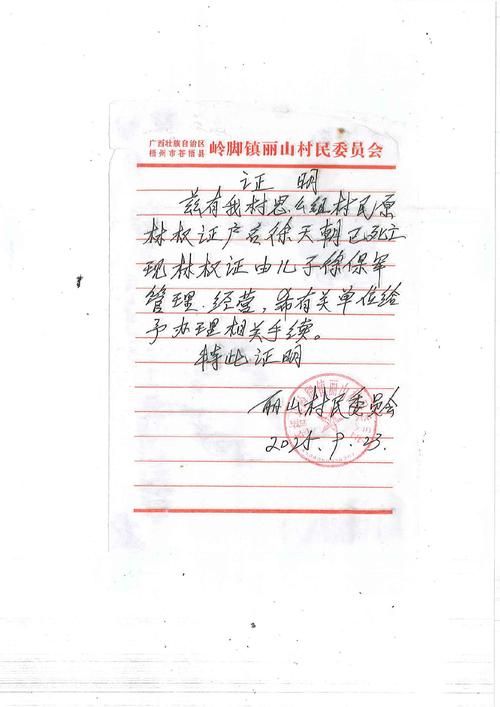 广西壮族自治区
梧州市苍梧县
岭脚镇丽山村民委员会
证明
兹有我村思么组村民原
林权证户主徐天朝已死亡
现林权证由儿子徐保军
管理、经营,希有关单位给
予办理相关手续。
特此证明
丽山村民委员会
2025.9.23.